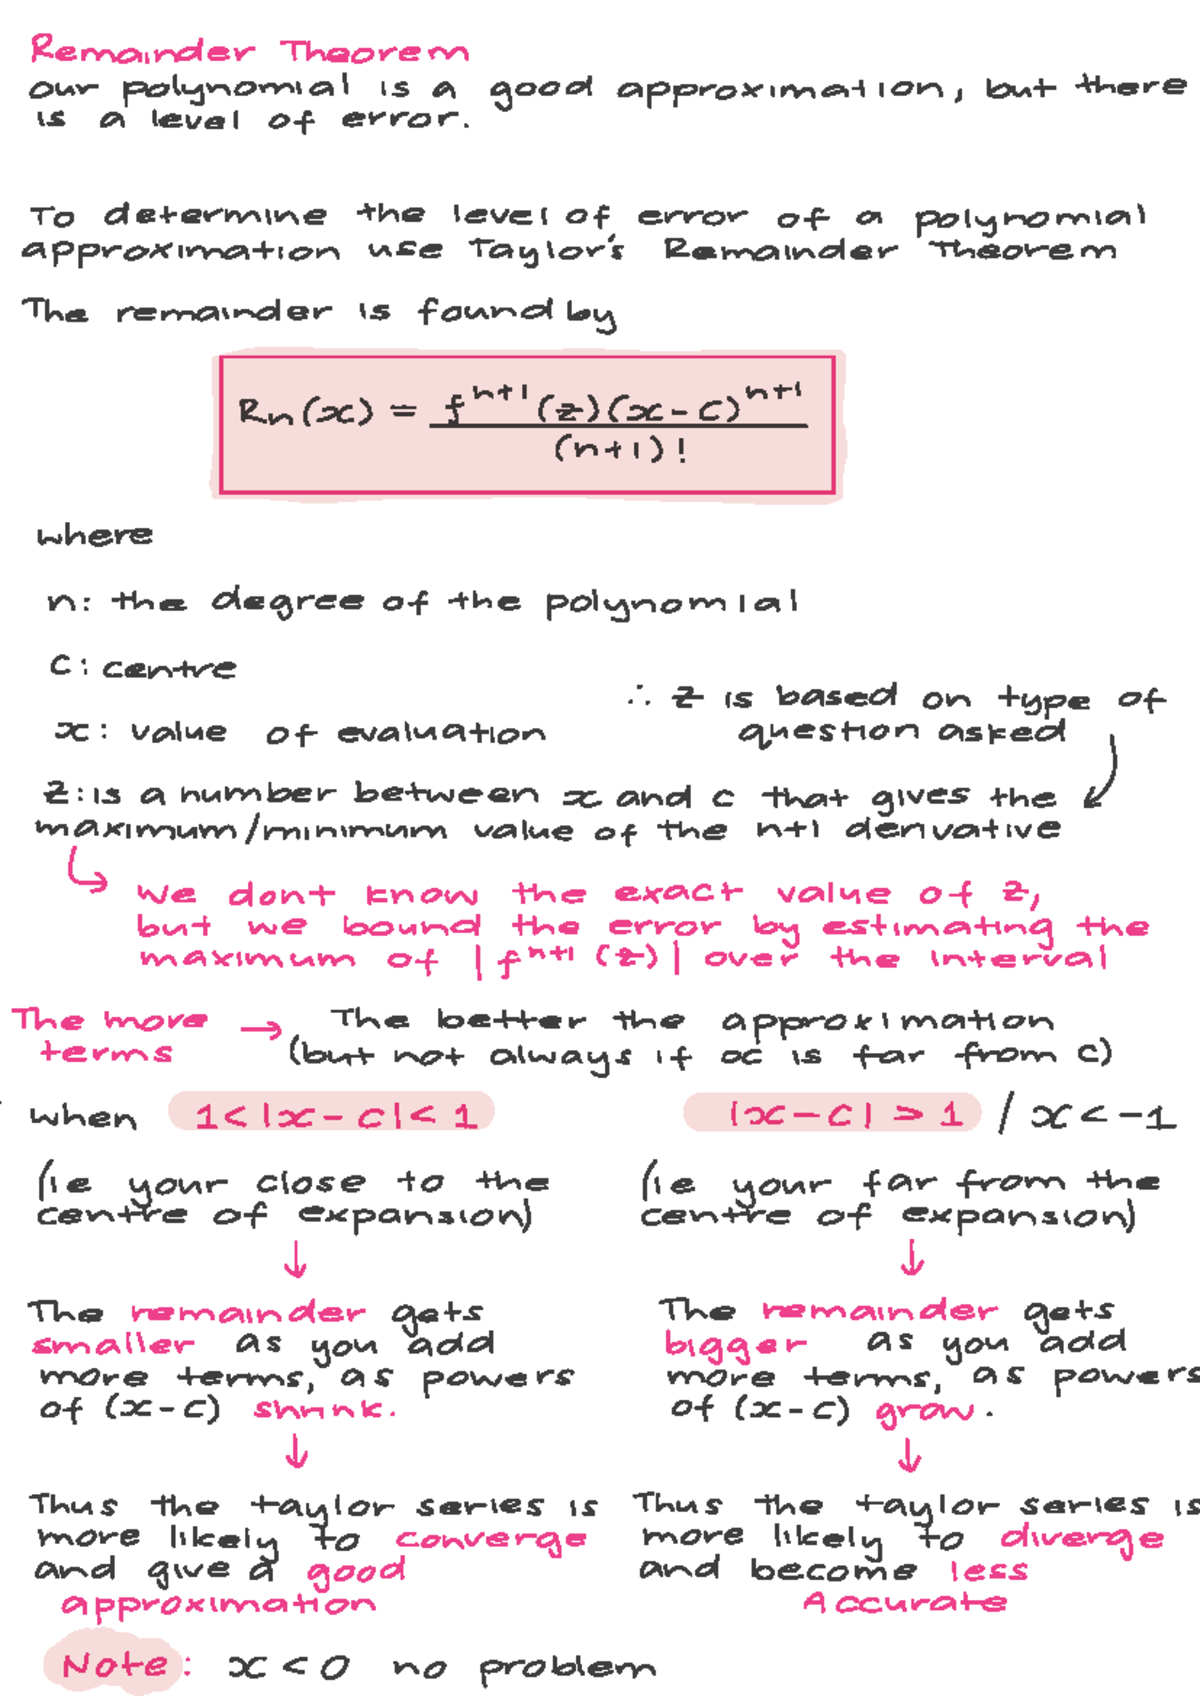 Remainder Theorem
our polynomial is a good approximation, but there
is a level of error.
To determine the level of error of a polynomial
approximation use Taylor's Remainder Theorem
The remainder is found by
Rn(x) = f^n+1(z)(x-c)^n+1
(n+1)!
where
n: the degree of the polynomial
c: centre
∴ z is based on type of
question asked
x: value of evaluation
z: is a number between x and c that gives the
maximum/minimum value of the n+1 derivative
we dont know the exact value of z,
but we bound the error by estimating the
maximum of |f^n+1(z)| over the interval
The more → The better the approximation
terms (but not always if x is far from c)
when 1<|x-c|<1 |x-c|>1 / x<-1
(ie your close to the
centre of expansion)
↓
The remainder gets
smaller as you add
more terms, as powers
of (x-c) shrink.
↓
Thus the taylor series is
more likely to converge
and give a good
approximation
(ie your far from the
centre of expansion)
↓
The remainder gets
bigger as you add
more terms, as powers
of (x-c) grow.
↓
Thus the taylor series is
more likely to diverge
and become less
Accurate
Note: x<0 no problem